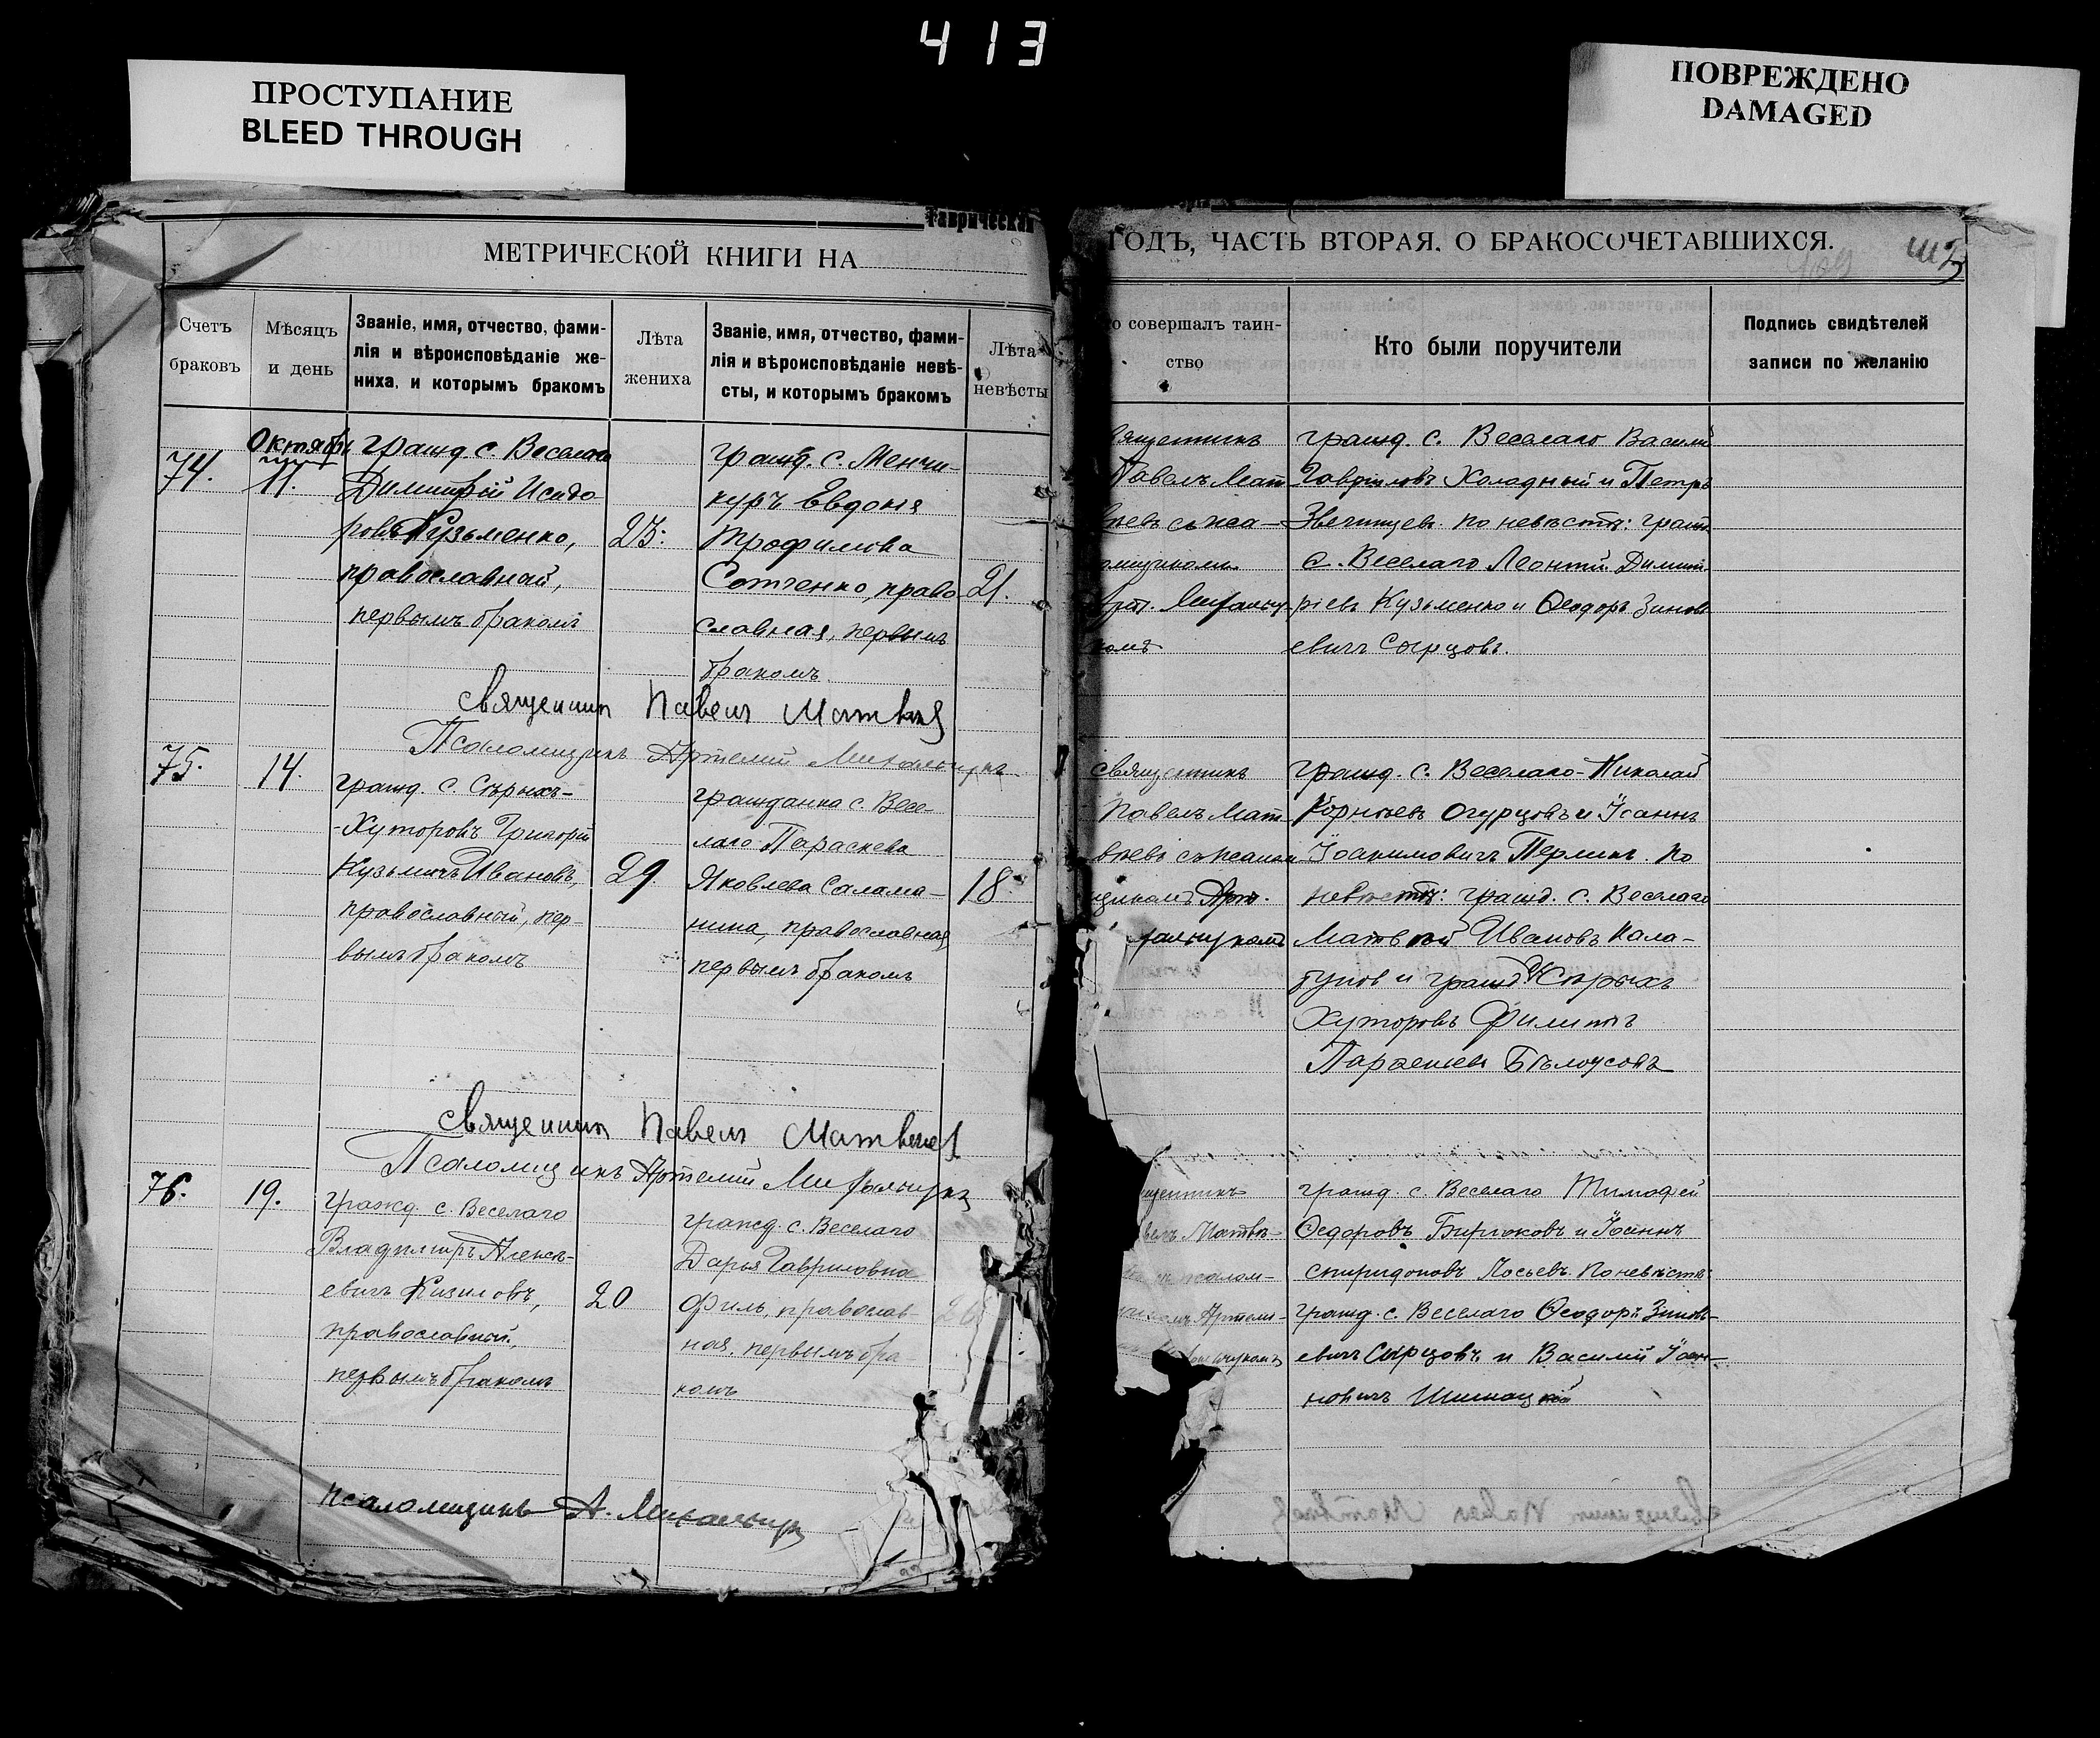 413
ПРОСТУПАНИЕ
BLEED THROUGH
ПОВРЕЖДЕНО
DAMAGED
Таврической
МЕТРИЧЕСКОЙ КНИГИ НА
ГОДЪ, ЧАСТЬ ВТОРАЯ. О БРАКОСОЧЕТАВШИХСЯ.
Счетъ
браковъ
Мѣсяцъ
и день
Званіе, имя, отчество, фами-
лія и вѣроисповѣданіе же-
ниха, и которымъ бракомъ
Лѣта
жениха
Званіе, имя, отчество, фами-
лія и вѣроисповѣданіе невѣ-
сты, и которымъ бракомъ
Лѣта
невѣсты
о совершалъ таин-
ство
Кто были поручители
Подпись свидѣтелей
записи по желанію
74.
Октября
11.
гражд. с. Веселаго
Димитрій Исидо-
ровъ Кузьменко,
православный,
первымъ бракомъ
23.
гражд. с. Менчи-
куръ Евдокія
Трофимова
Сотченко, право-
славная, первымъ
бракомъ.
21.
вященникъ
Павелъ Мат-
вѣевъ съ пса-
ломщикомъ
Арт. Михальчу-
комъ
гражд. с. Веселаго Василій
Гавриловъ Холодный и Петръ
Звягинцевъ. По невѣстѣ: гражд.
с. Веселаго Леонтій Димит-
ріевъ Кузьменко и Ѳеодоръ Зинов-
евичъ Сырцовъ.
Священникъ Павелъ Матвѣевъ
Псаломщикъ Артемій Михальчукъ
75.
14.
гражд. с. Сѣрыхъ-
-Хуторовъ Григорій
Кузьмичъ Ивановъ,
православный, пер-
вымъ бракомъ
29.
гражданка с. Весе-
лаго Параскева
Яковлева Салама-
нина, православная
первымъ бракомъ
18.
Священникъ
Павелъ Мат-
вѣевъ съ псалом
щикомъ Арт.
хальчукомъ
гражд. с. Веселаго Николай
Корнѣевъ Огурцовъ и Іоаннъ
Іоакимовичъ Перлинъ. По
невѣстѣ: гражд. с. Веселаго
Матвѣй Ивановъ Кала-
бунов и гражд. с. Сѣрыхъ
Хуторовъ Филиппъ
Парѳеньевъ Бѣлоусовъ
Священникъ Павелъ Матвѣевъ
Псаломщикъ Артемій Михальчукъ
76.
19.
гражд. с. Веселаго
Владиміръ Алексѣ-
евичъ Кизиловъ,
православный,
первымъ бракомъ
20
гражд. с. Веселаго
Дарья Гавриловна
Филь, православ
ная, первымъ бра-
комъ
20
щенникъ
велъ Матвѣ-
псалом-
Артем-
чукомъ
гражд. с. Веселаго Тимофей
Ѳедоровъ Бирюковъ и Іоаннъ
Спиридоновъ Лосьевъ. По невѣстѣ:
гражд. с. Веселаго Ѳеодоръ Зиновь-
евичъ Сырцовъ и Василій Іоан-
новичъ Шимацкій
псаломщикъ А. Михальчукъ